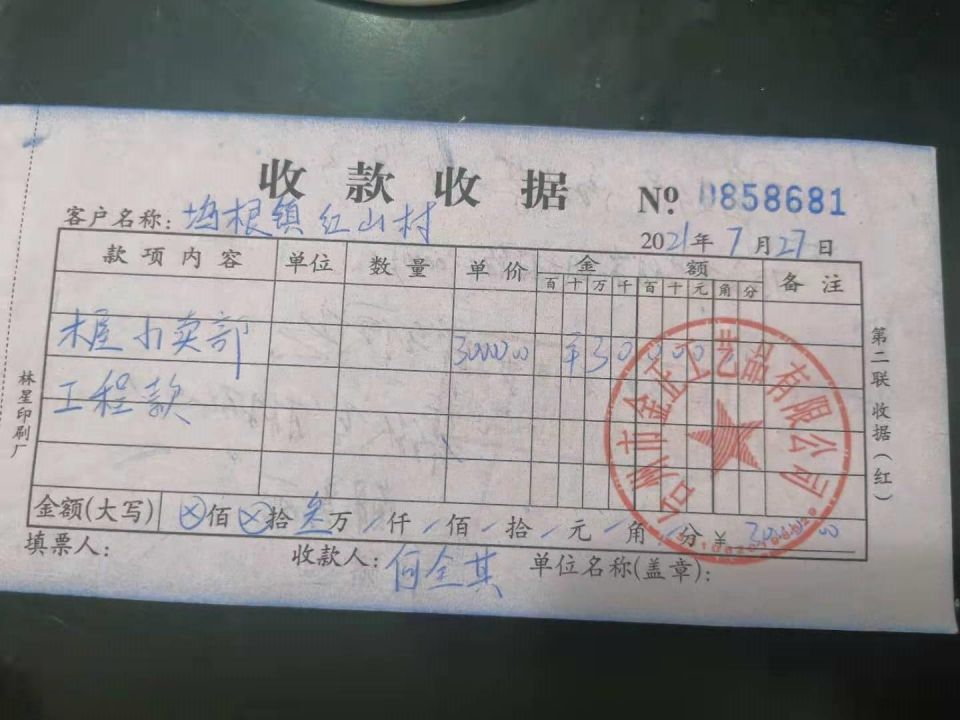 收款收据
No. 0858681
客户名称：坞根镇红山村
2021年7月27日
款项内容 单位 数量 单价 金额 备注
百十万千百十元角分
木屋小卖部 30000.00 ¥3000000
工程款
金额(大写) ⊗佰⊗拾叁万/仟/佰/拾/元/角/分 ¥ 30000.00
填票人： 收款人：何全其 单位名称(盖章)：
第二联 收据(红)
林星印刷厂
台州市金正工艺品有限公司